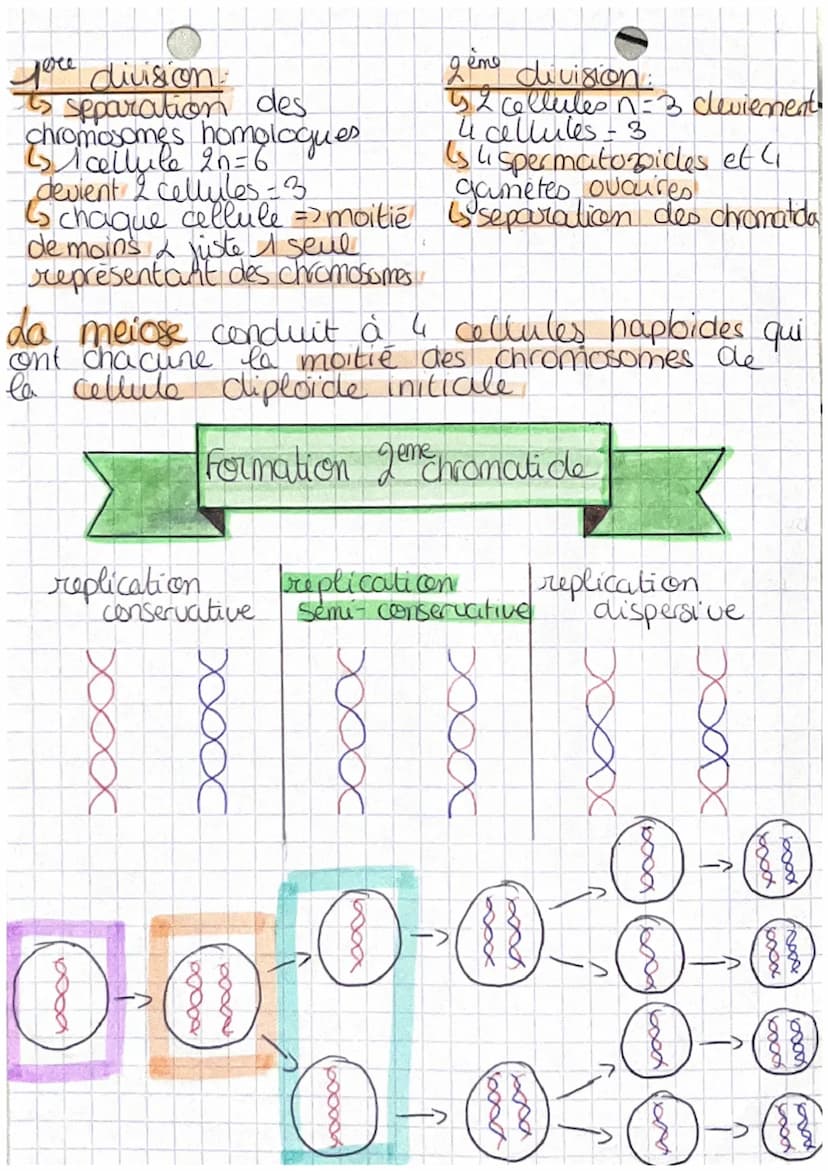 1ère division:
↳ séparation des
chromosomes homologues
↳ 1 cellule 2n=6
devient 2 cellules = 3
↳ chaque cellule => moitié
de moins & juste 1 seul
représentant des chromosomes
2ème division:
↳ 2 cellules n=3 deviement
4 cellules = 3
↳ 4 spermatozoides et 4
gamètes ovaires
↳ séparation des chromatida
La meiose conduit à 4 cellules haploides qui
ont chacune la moitié des chromosomes de
la cellule diploïde initiale
Formation 2eme chromatide
replication
conservative
replication
semi-conservative
replication
dispersive